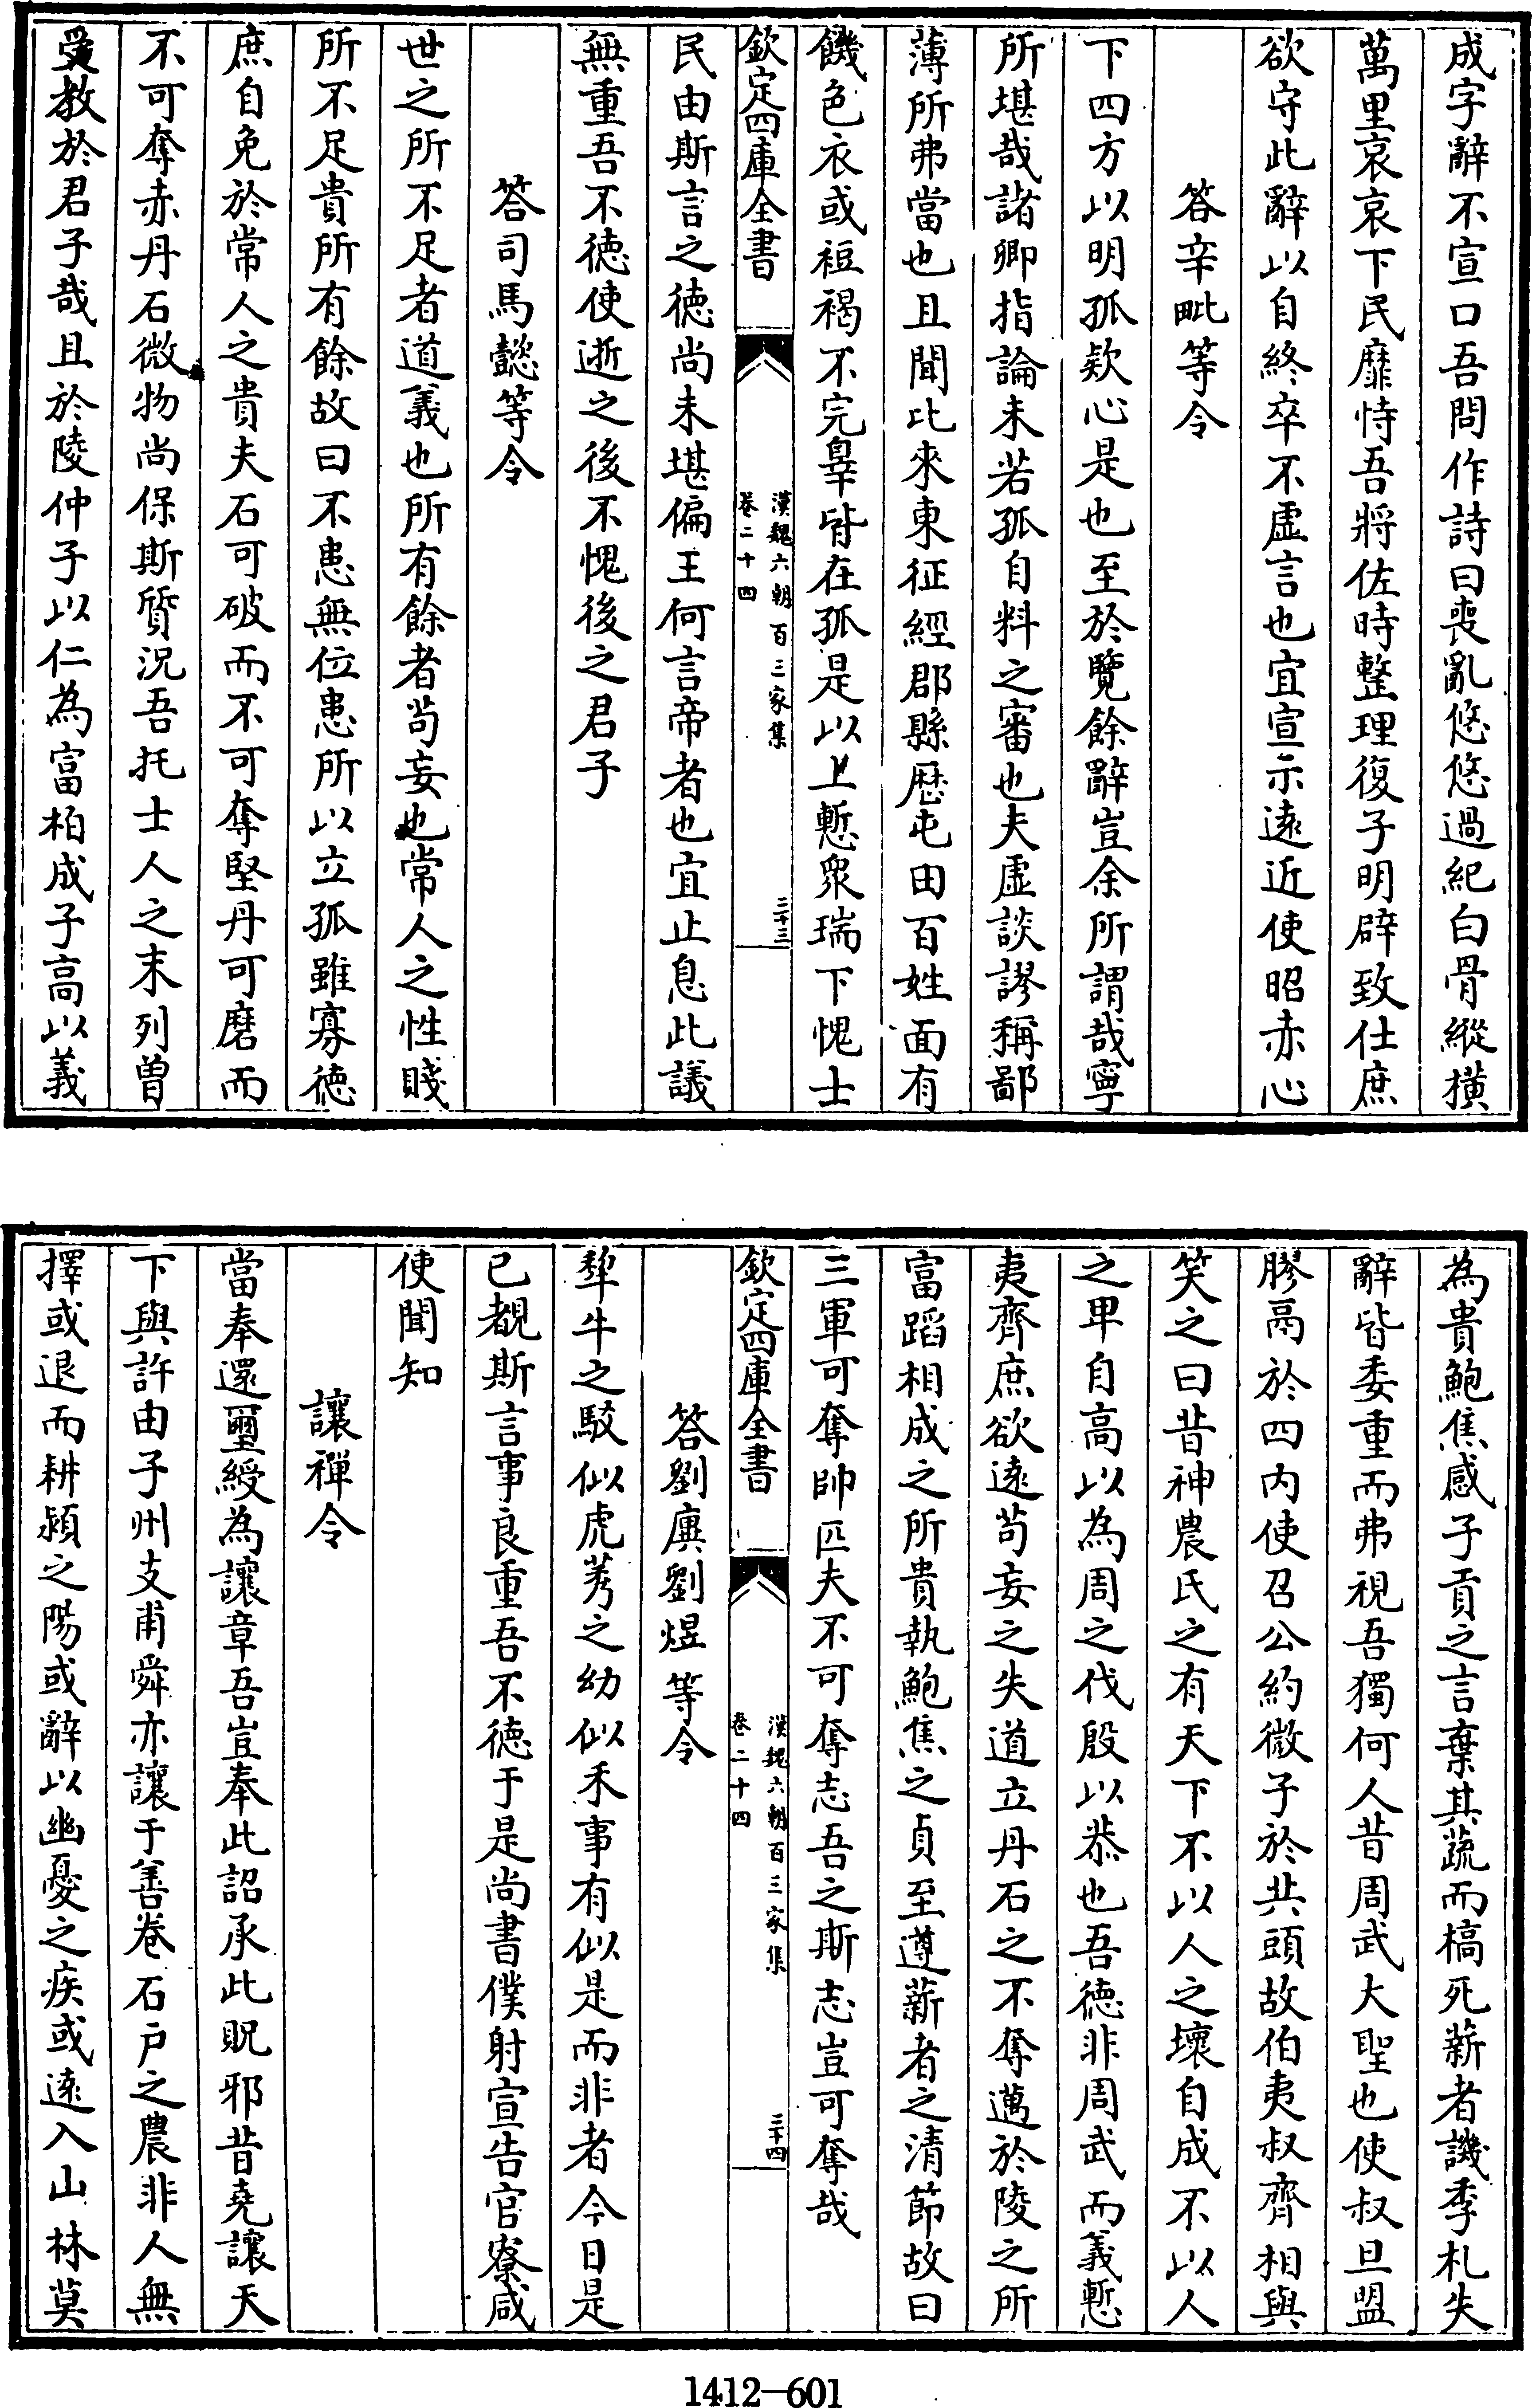 成字辭不宣口吾問作詩曰喪亂悠悠過紀白骨縱橫
萬里哀哀下民靡恃吾將佐時整理復子明辟致仕庶
欲守此辭以自終卒不虛言也宜宣示遠近使昭赤心
答辛毗等令
下四方以明孤欵心是也至於覽餘辭豈余所謂哉寧
所堪哉諸卿指論未若孤自料之審也夫虛談謬稱鄙
薄所弗當也且聞比來東征經郡縣歴屯田百姓面有
饑色衣或裋褐不完辠皆在孤是以上慙衆瑞下愧士
欽定四庫全書
漢魏六朝百三家集
卷二十四
三十三
民由斯言之徳尚未堪偏王何言帝者也宜止息此議
無重吾不徳使逝之後不愧後之君子
答司馬懿等令
世之所不足者道義也所有餘者苟妄也常人之性賤
所不足貴所有餘故曰不患無位患所以立孤雖寡徳
庶自免於常人之貴夫石可破而不可奪堅丹可磨而
不可奪赤丹石微物尚保斯質況吾托士人之末列曽
受教於君子哉且於陵仲子以仁為富柏成子高以義
為貴鮑焦感子貢之言棄其蔬而槁死薪者譏季札失
辭皆委重而弗視吾獨何人昔周武大聖也使叔旦盟
膠鬲於四内使召公約微子於共頭故伯夷叔齊相與
笑之曰昔神農氏之有天下不以人之壞自成不以人
之卑自高以為周之伐殷以恭也吾徳非周武而義慙
夷齊庶欲遠苟妄之失道立丹石之不奪邁於陵之所
富蹈柏成之所貴執鮑焦之貞至遵薪者之清節故曰
三軍可奪帥匹夫不可奪志吾之斯志豈可奪哉
欽定四庫全書
漢魏六朝百三家集
卷二十四
三十四
答劉廙劉煜等令
犂牛之駮似虎莠之幼似禾事有似是而非者今日是
已覩斯言事良重吾不徳于是尚書僕射宣告官寮咸
使聞知
讓禪令
當奉還璽綬為讓章吾豈奉此詔承此貺邪昔堯讓天
下與許由子州支甫舜亦讓于善卷石戸之農非人無
擇或退而耕潁之陽或辭以幽憂之疾或遠入山林莫
1412—601